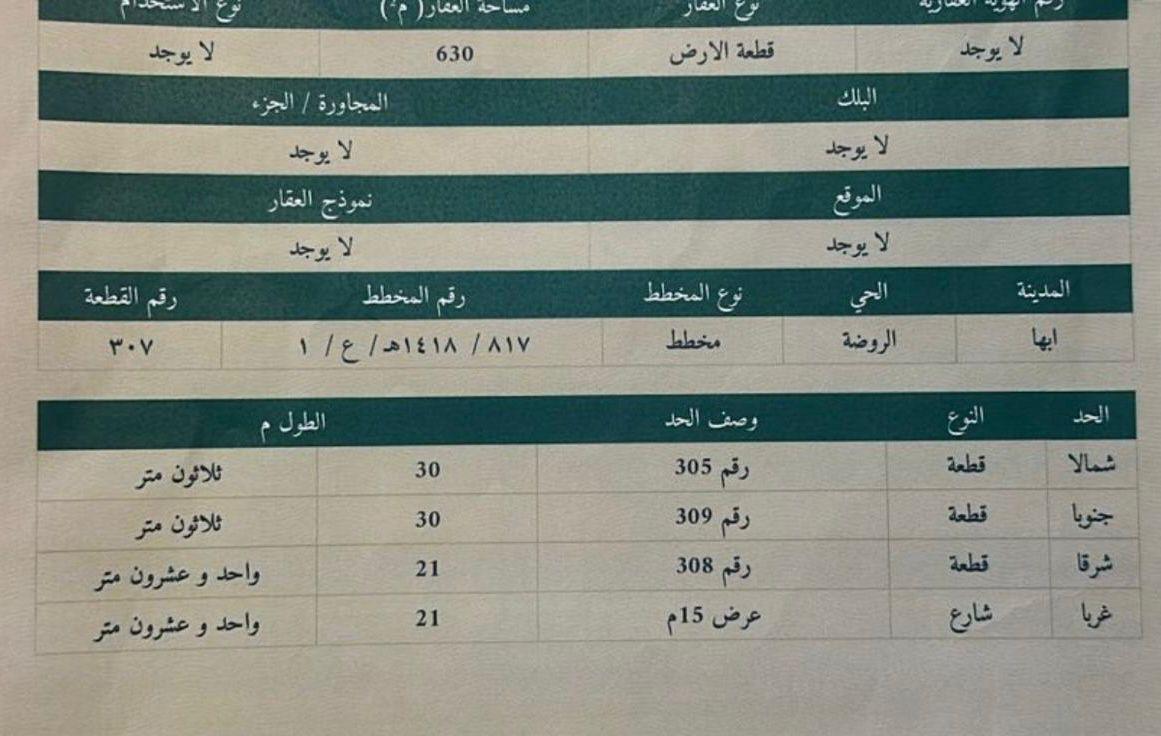 رقم الهوية العقارية نوع العقار مساحة العقار( م²) نوع الاستخدام
لا يوجد قطعة الارض 630 لا يوجد
البلك المجاورة / الجزء
لا يوجد لا يوجد
الموقع نموذج العقار
لا يوجد لا يوجد
المدينة الحي نوع المخطط رقم المخطط رقم القطعة
ابها الروضة مخطط ٨١٧ / ١٤١٨هـ / ع / ١ ٣٠٧
الحد النوع وصف الحد الطول م
شمالا قطعة رقم 305 30 ثلاثون متر
جنوبا قطعة رقم 309 30 ثلاثون متر
شرقا قطعة رقم 308 21 واحد و عشرون متر
غربا شارع عرض 15م 21 واحد و عشرون متر